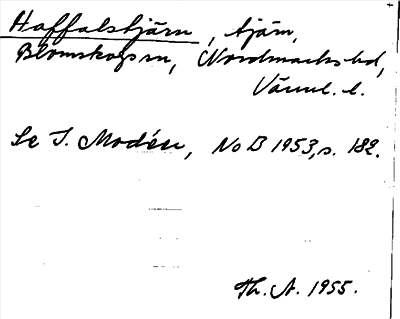 Haffalstjärn, tjärn,
Blomskogs sn, Nordmarks hd,
Värml. l.
Se I. Modéer, NoB 1953, s. 182.
Th. A. 1955.